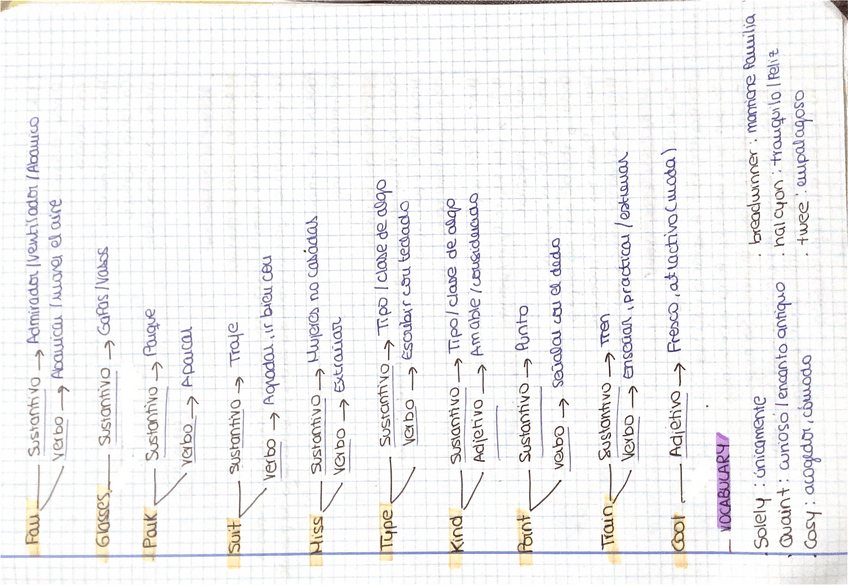 Fan — Sustantivo → Admirador/ventilador/Abanico
Verbo → Abanicar/mover el aire
Glasses — Sustantivo → Gafas/Vasos
Park — Sustantivo → Parque
Verbo → Aparcar
Suit — Sustantivo → Traje
Verbo → Agradar, ir bien con
Miss — Sustantivo → Mujeres no casadas
Verbo → Extrañar
Type — Sustantivo → Tipo/clase de algo
Verbo → Escribir con teclado
Kind — Sustantivo → Tipo/clase de algo
Adjetivo → Amable/considerado
Point — Sustantivo → Punto
Verbo → Señalar con el dedo
Train — Sustantivo → Tren
Verbo → Enseñar, practicar/entrenar
Cool — Adjetivo → Fresco, atractivo (moda)
— VOCABULARY
. Solely: únicamente
. Quaint: curioso/encanto antiguo
. Cosy: acogedor, cómodo
. breadwinner: mantiene familia
. halcyon: tranquilo/feliz
. twee: empalagoso